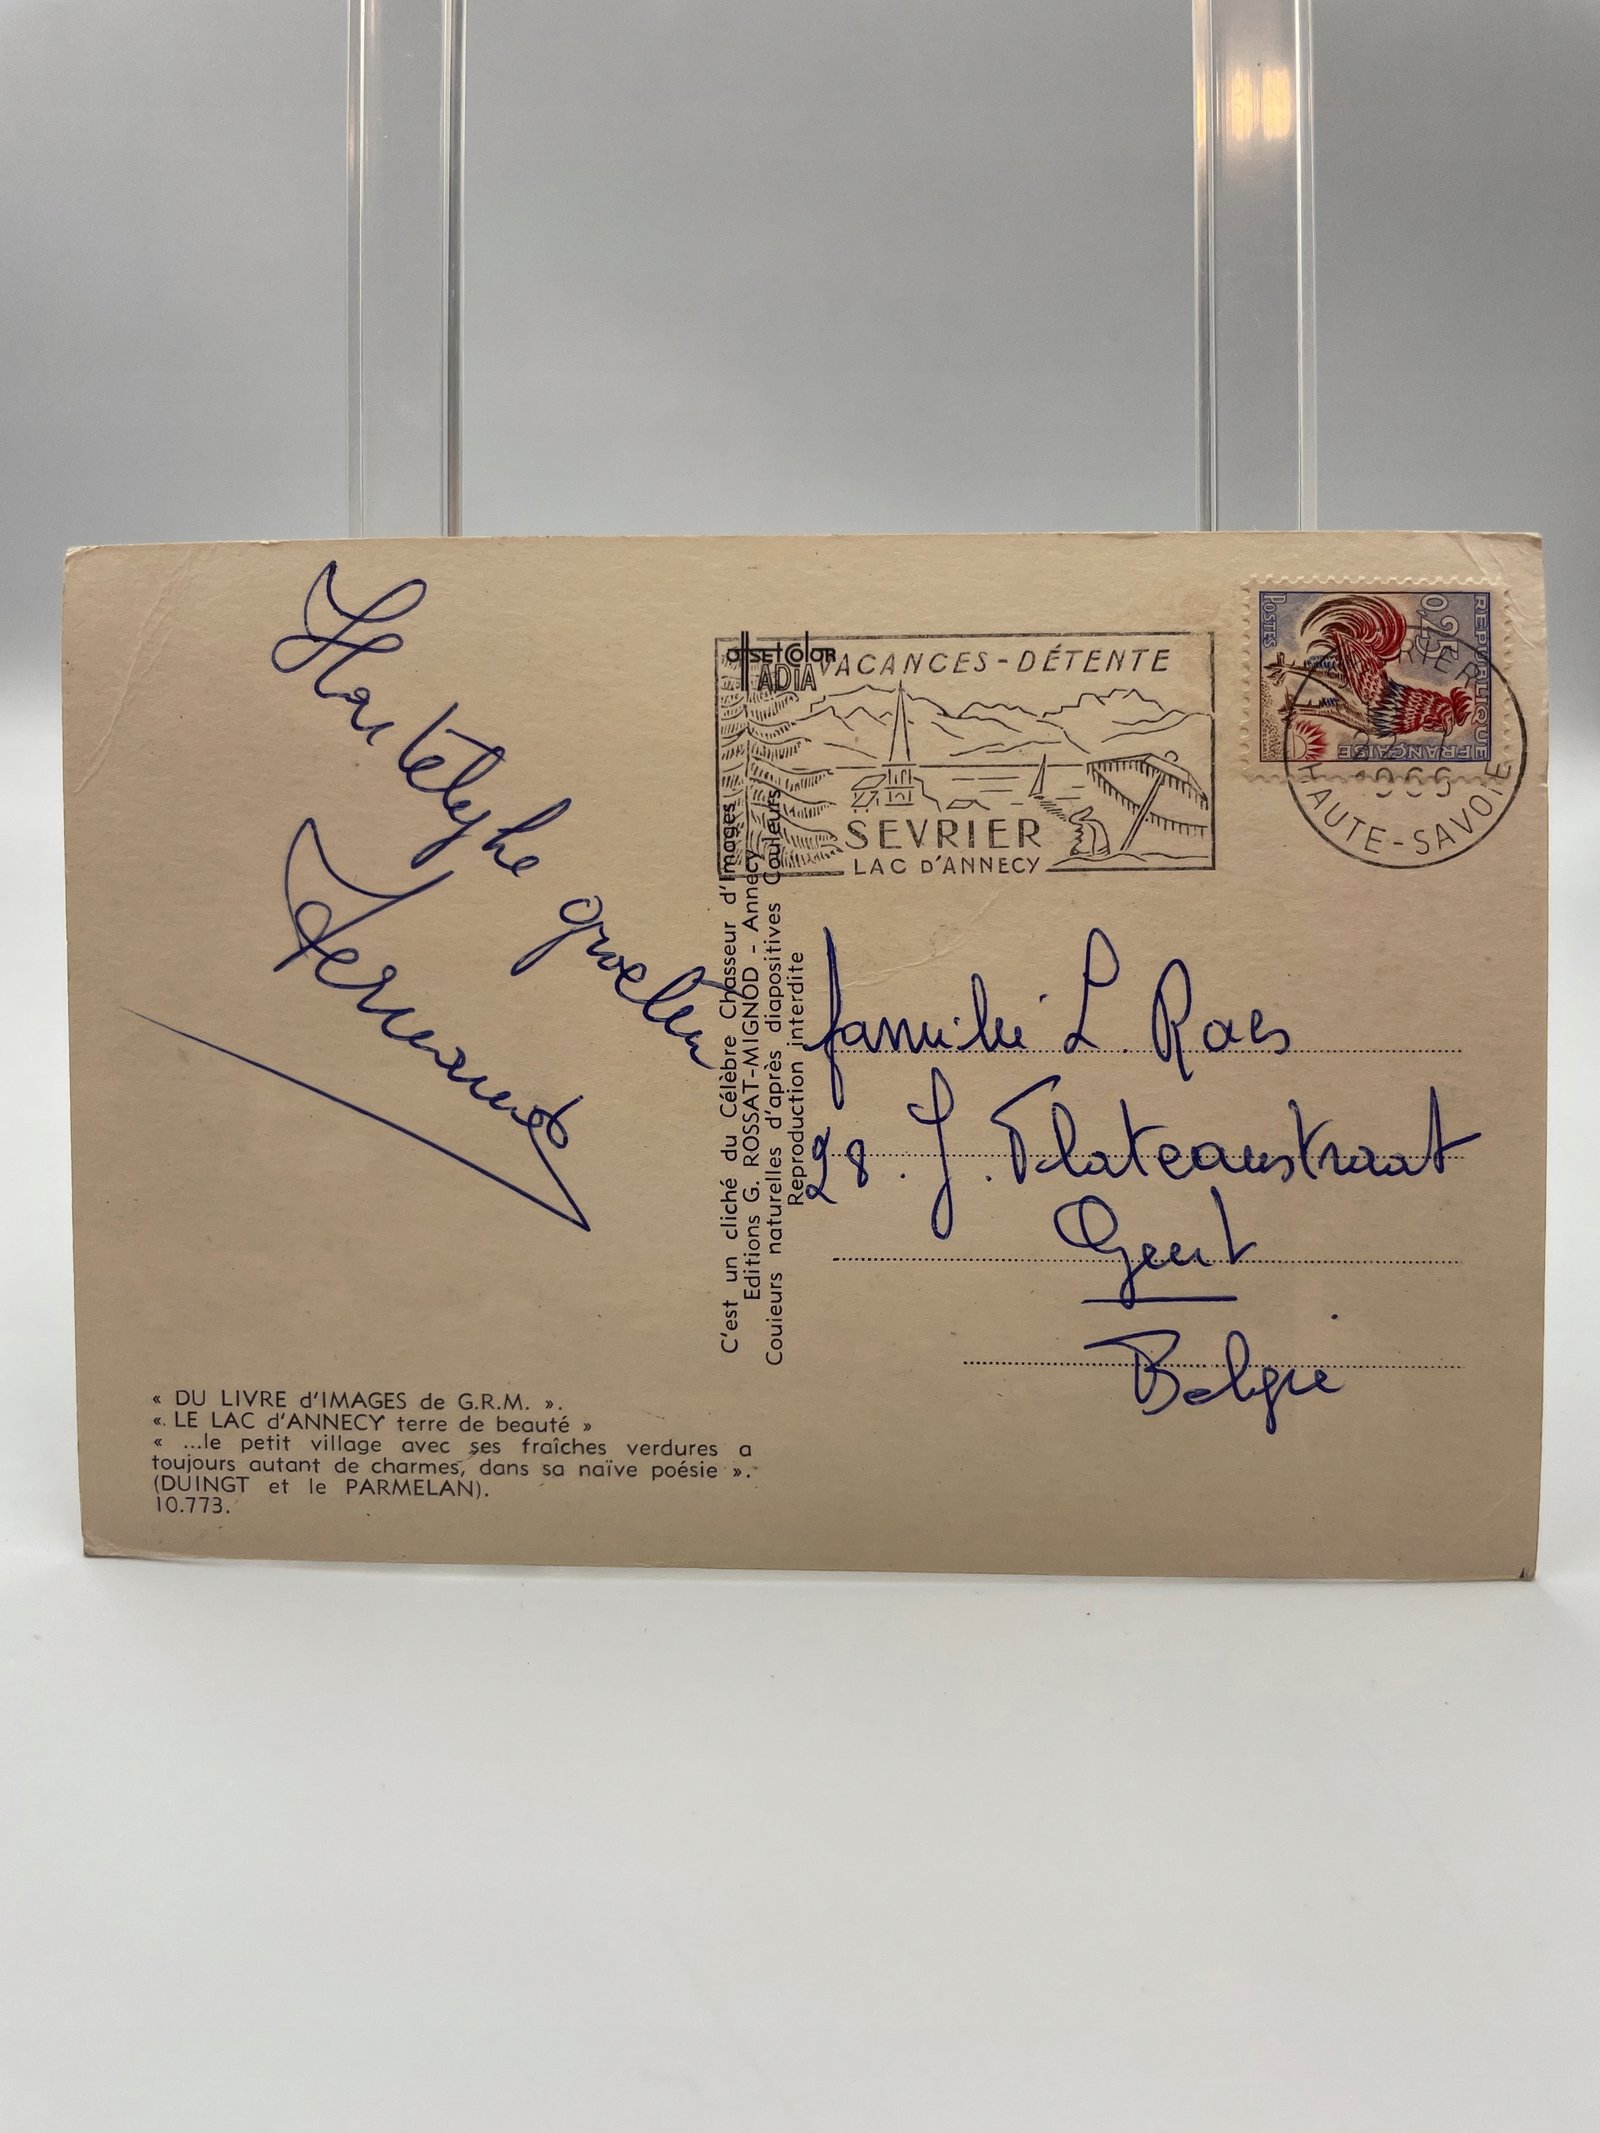 Hartelijke groeten
Fernand
« DU LIVRE d'IMAGES de G.R.M. ».
« LE LAC d'ANNECY terre de beauté »
« ...le petit village avec ses fraîches verdures a
toujours autant de charmes, dans sa naïve poésie ».
(DUINGT et le PARMELAN).
10.773.
offset color
ADIA
C'est un cliché du Célèbre Chasseur d'Images
Editions G. ROSSAT-MIGNOD - Annecy
Couleurs naturelles d'après diapositives Couleurs
Reproduction interdite
VACANCES-DÉTENTE
SEVRIER
LAC D'ANNECY
REPUBLIQUE
FRANÇAISE
0,25
POSTES
HAUTE-SAVOIE
familie L. Raes
28. J. Plateaustraat
Gent
Belgie